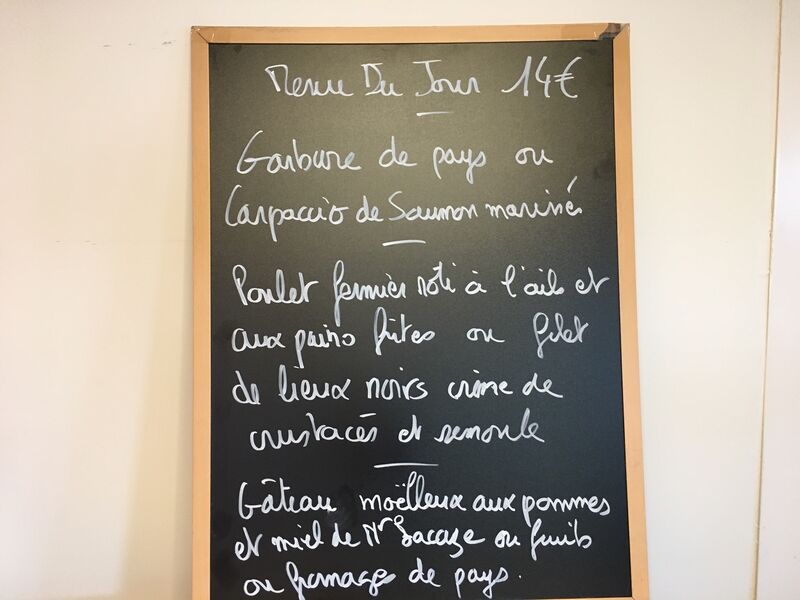 Menu Du Jour 14€
Garbure de pays ou
Carpaccio de Saumon mariné
Poulet fermier rôti à l'ails et
aux pains frites ou filet
de lieux noirs crème de
crustacés et semoule
Gâteau moëlleux aux pommes
et miel de Mr Lacaze ou fruits
ou fromages de pays.